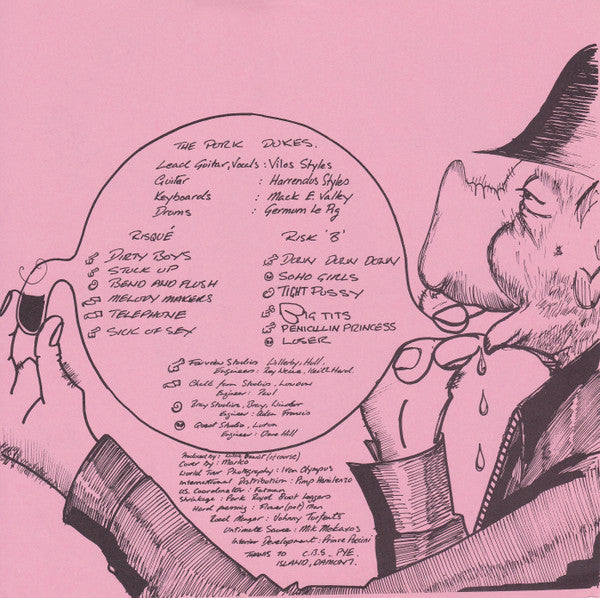 THE PORK DUKES.
Lead Guitar, Vocals : Vilos Styles
Guitar : Horrendus Styles
Keyboards : Mack E. Valley
Drums : Germun Le Pig
RISQUÉ
DIRTY BOYS
STUCK UP
BEND AND FLUSH
MELODY MAKERS
TELEPHONE
SICK OF SEX
RISK 'B'
DOWN DOWN DOWN
SOHO GIRLS
TIGHT PUSSY
BIG TITS
PENICILLIN PRINCESS
LOSER
Fairview Studios, Willerby, Hull.
Engineer: Roy Neave, Keith Herd.
Chalk Farm Studios, London
Engineer: Paul
Bray Studios, Bray, Windsor
Engineer: Francis
Quest Studio, Luton
Engineer: Dave Hill
Produced by: (of course)
Cover by: Marko
World Tour Photography: Ivan Olympus
International Distribution: Pimp
U.S. Coordinator: Fatman
Shrinkage: Pork Royal Dust Leggers
Hard pressing: Flower (pot) Man
Road Manger: Johnny Torfents
Untimate Sauce: Mik
Interior Development: Prince
THANKS TO C.B.S. PYE.
ISLAND, DAMONT.